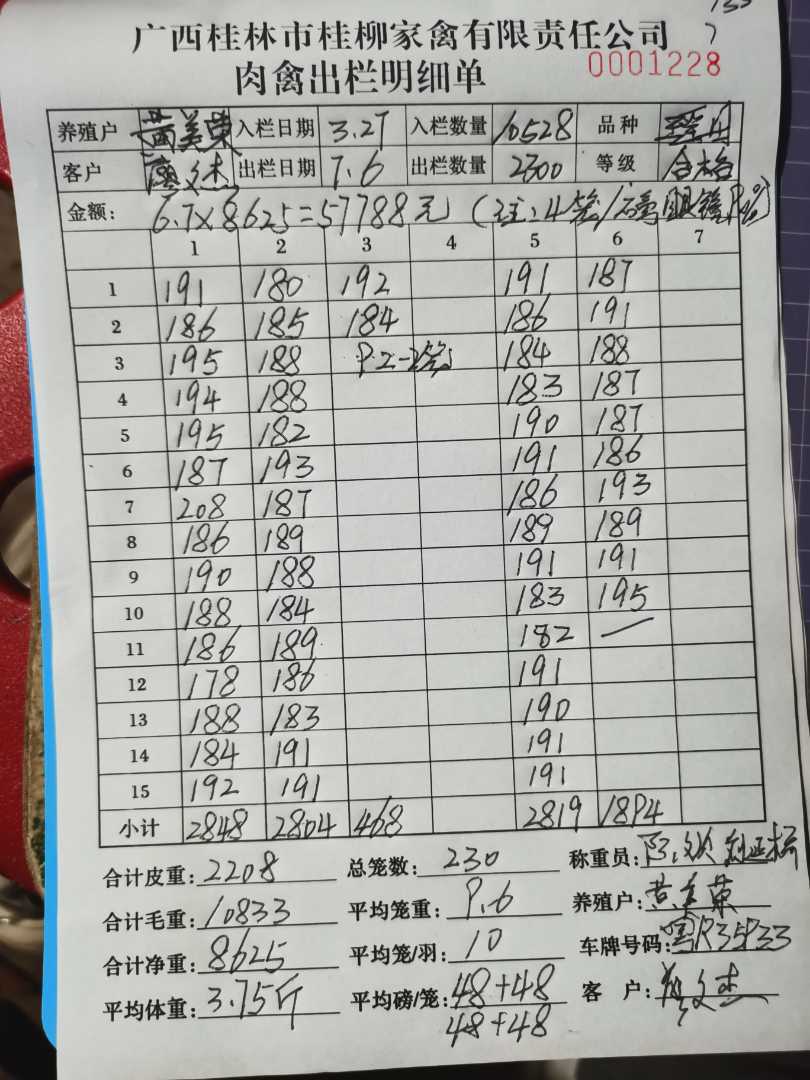 广西桂林市桂柳家禽有限责任公司
肉禽出栏明细单
0001228
养殖户 黄美荣 入栏日期 3.27 入栏数量 10528 品种
客户 廖文杰 出栏日期 7.6 出栏数量 2300 等级 合格
金额: 6.7×8625=57788元 (注:4笼/磅
1 2 3 4 5 6 7
1 191 180 192 191 187
2 186 185 184 186 191
3 195 188 184 188
4 194 188 183 187
5 195 182 190 187
6 187 193 191 186
7 208 187 186 193
8 186 189 189 189
9 190 188 191 191
10 188 184 183 195
11 186 189 182 —
12 178 186 191
13 188 183 190
14 184 191 191
15 192 191 191
小计 2848 2804 468 2819 1894
合计皮重: 2208 总笼数: 230 称重员:
合计毛重: 10833 平均笼重: 9.6 养殖户: 黄美荣
合计净重: 8625 平均笼/羽: 10 车牌号码: 粤R35933
平均体重: 3.75斤 平均磅/笼: 48+48 客 户: 廖文杰
48+48